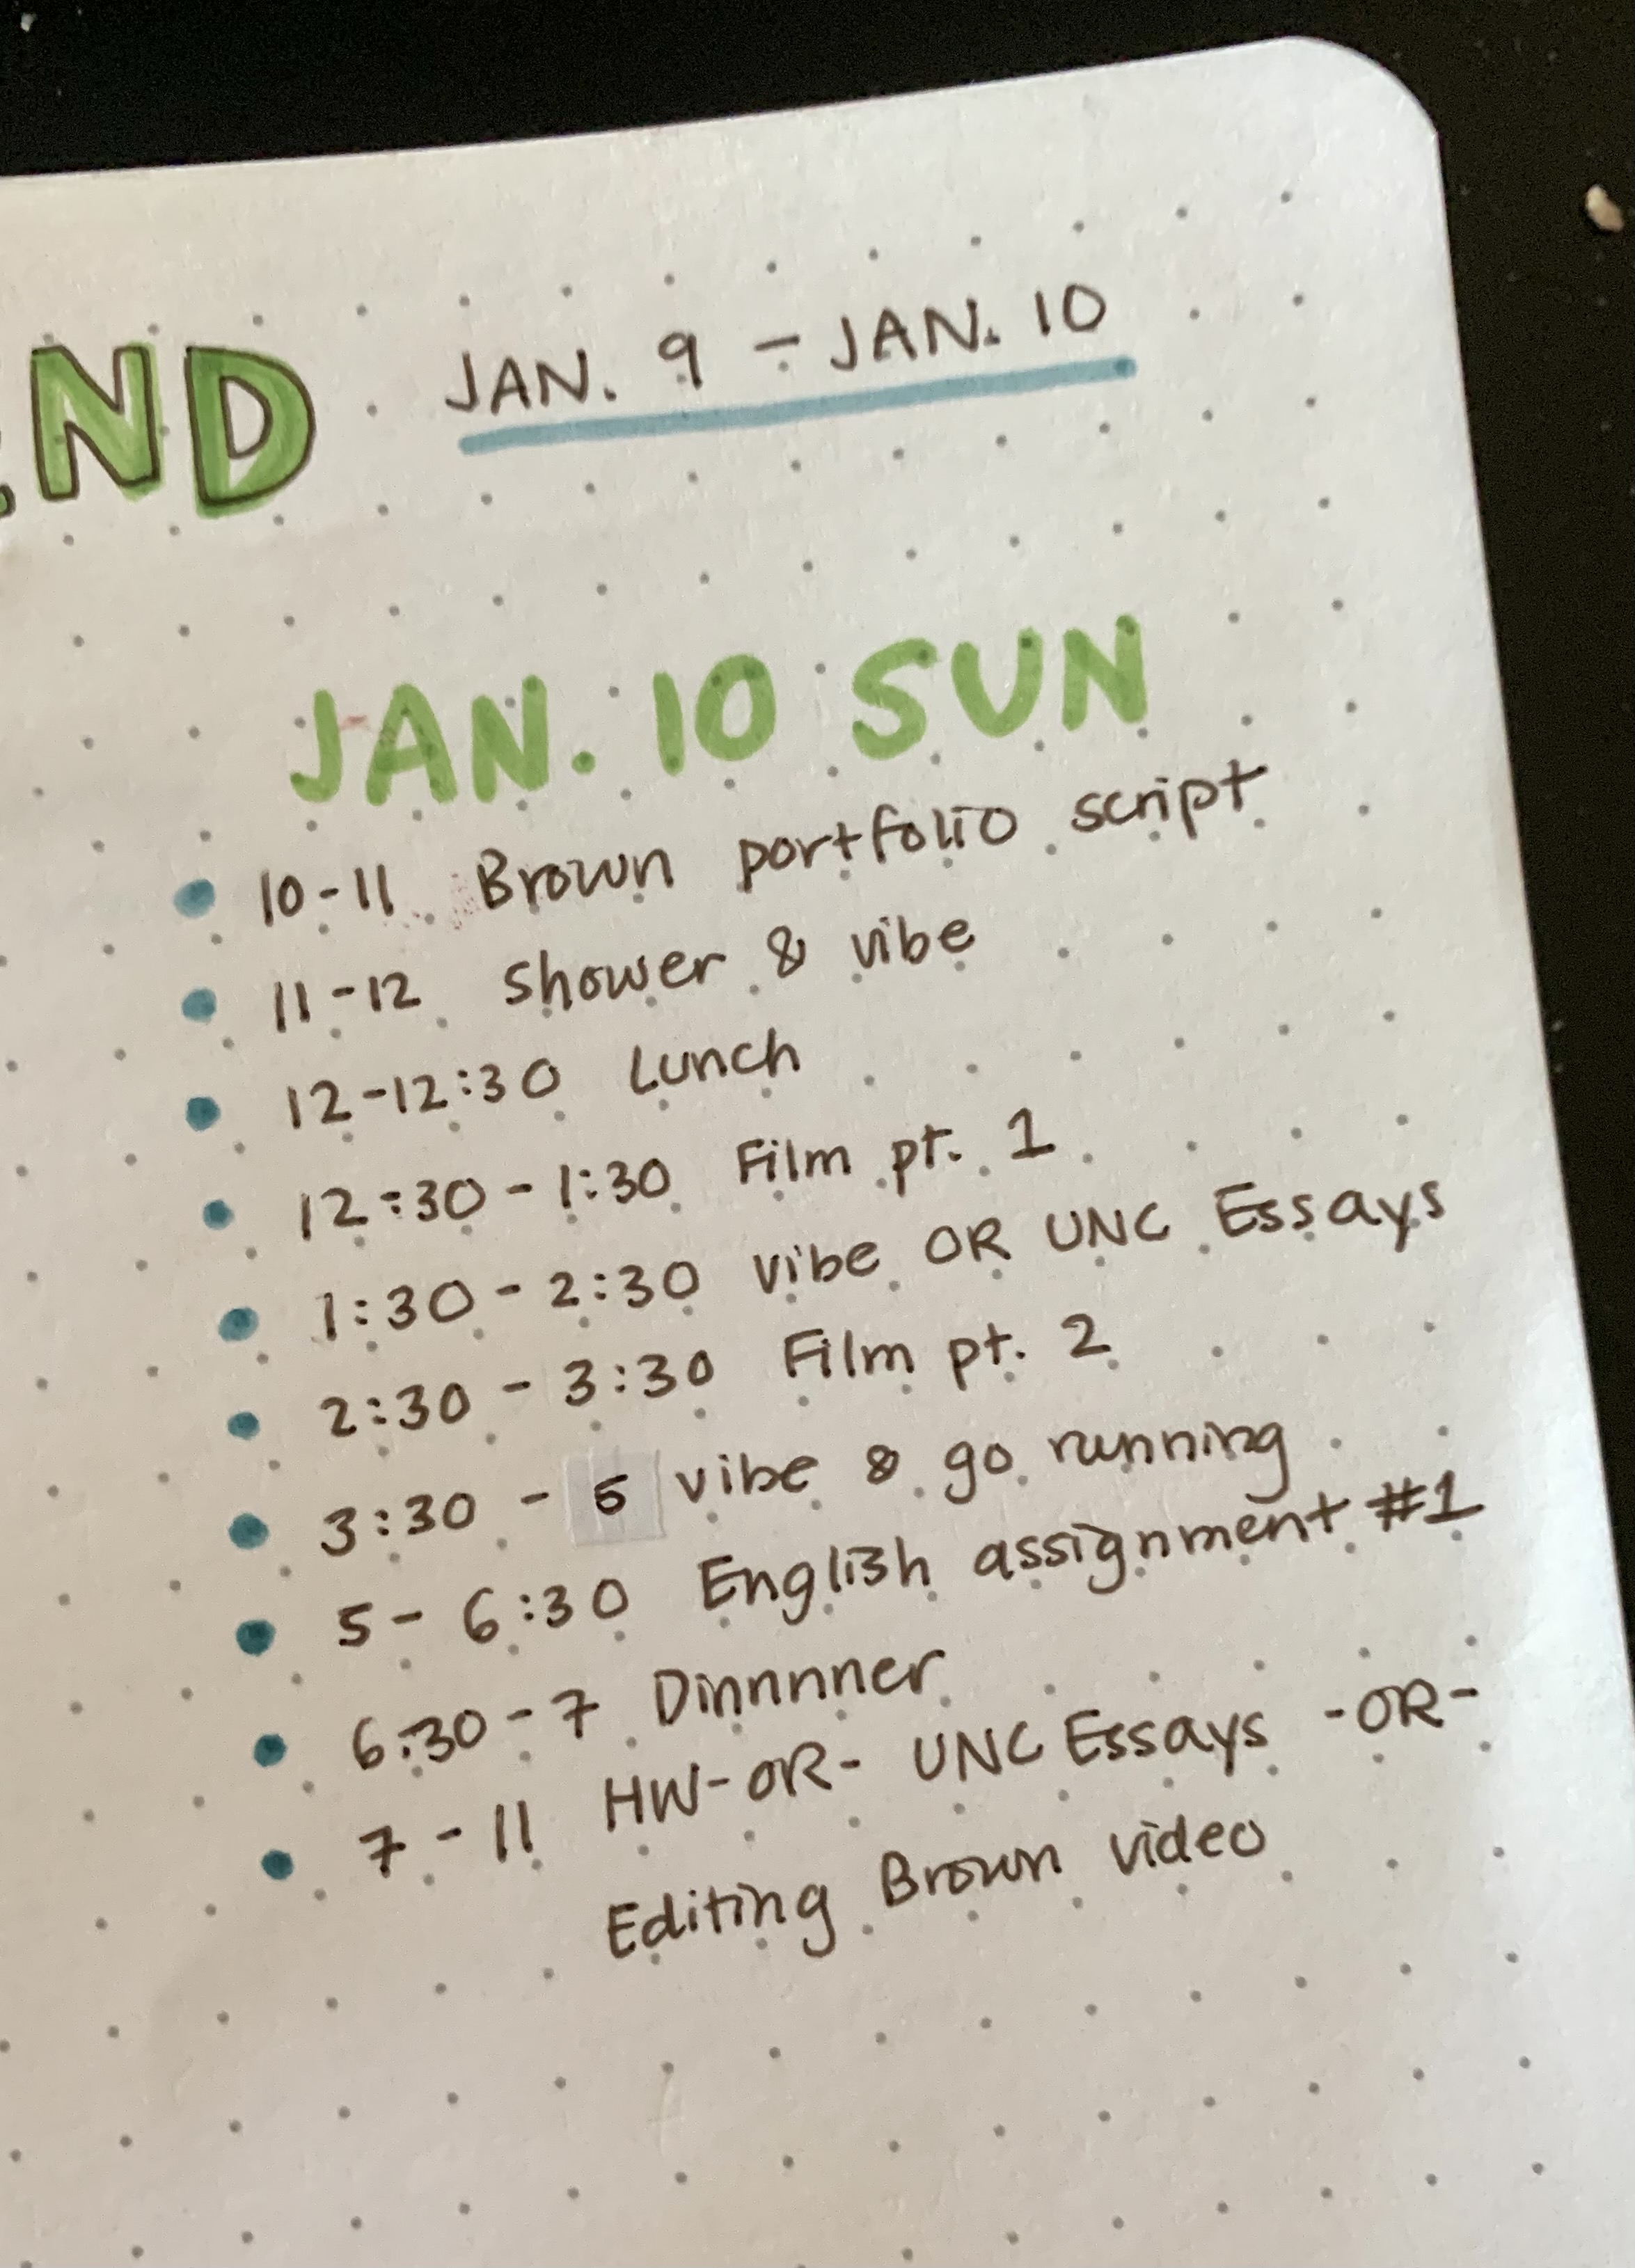 END JAN. 9 - JAN. 10
JAN. 10 SUN
10-11 Brown portfolio script
11-12 shower & vibe
12-12:30 Lunch
12:30-1:30 Film pt. 1
1:30-2:30 vibe OR UNC Essays
2:30-3:30 Film pt. 2
3:30-5 vibe & go running
5-6:30 English assignment #1
6:30-7 Dinnnnner
7-11 HW-OR- UNC Essays -OR-
Editing Brown video